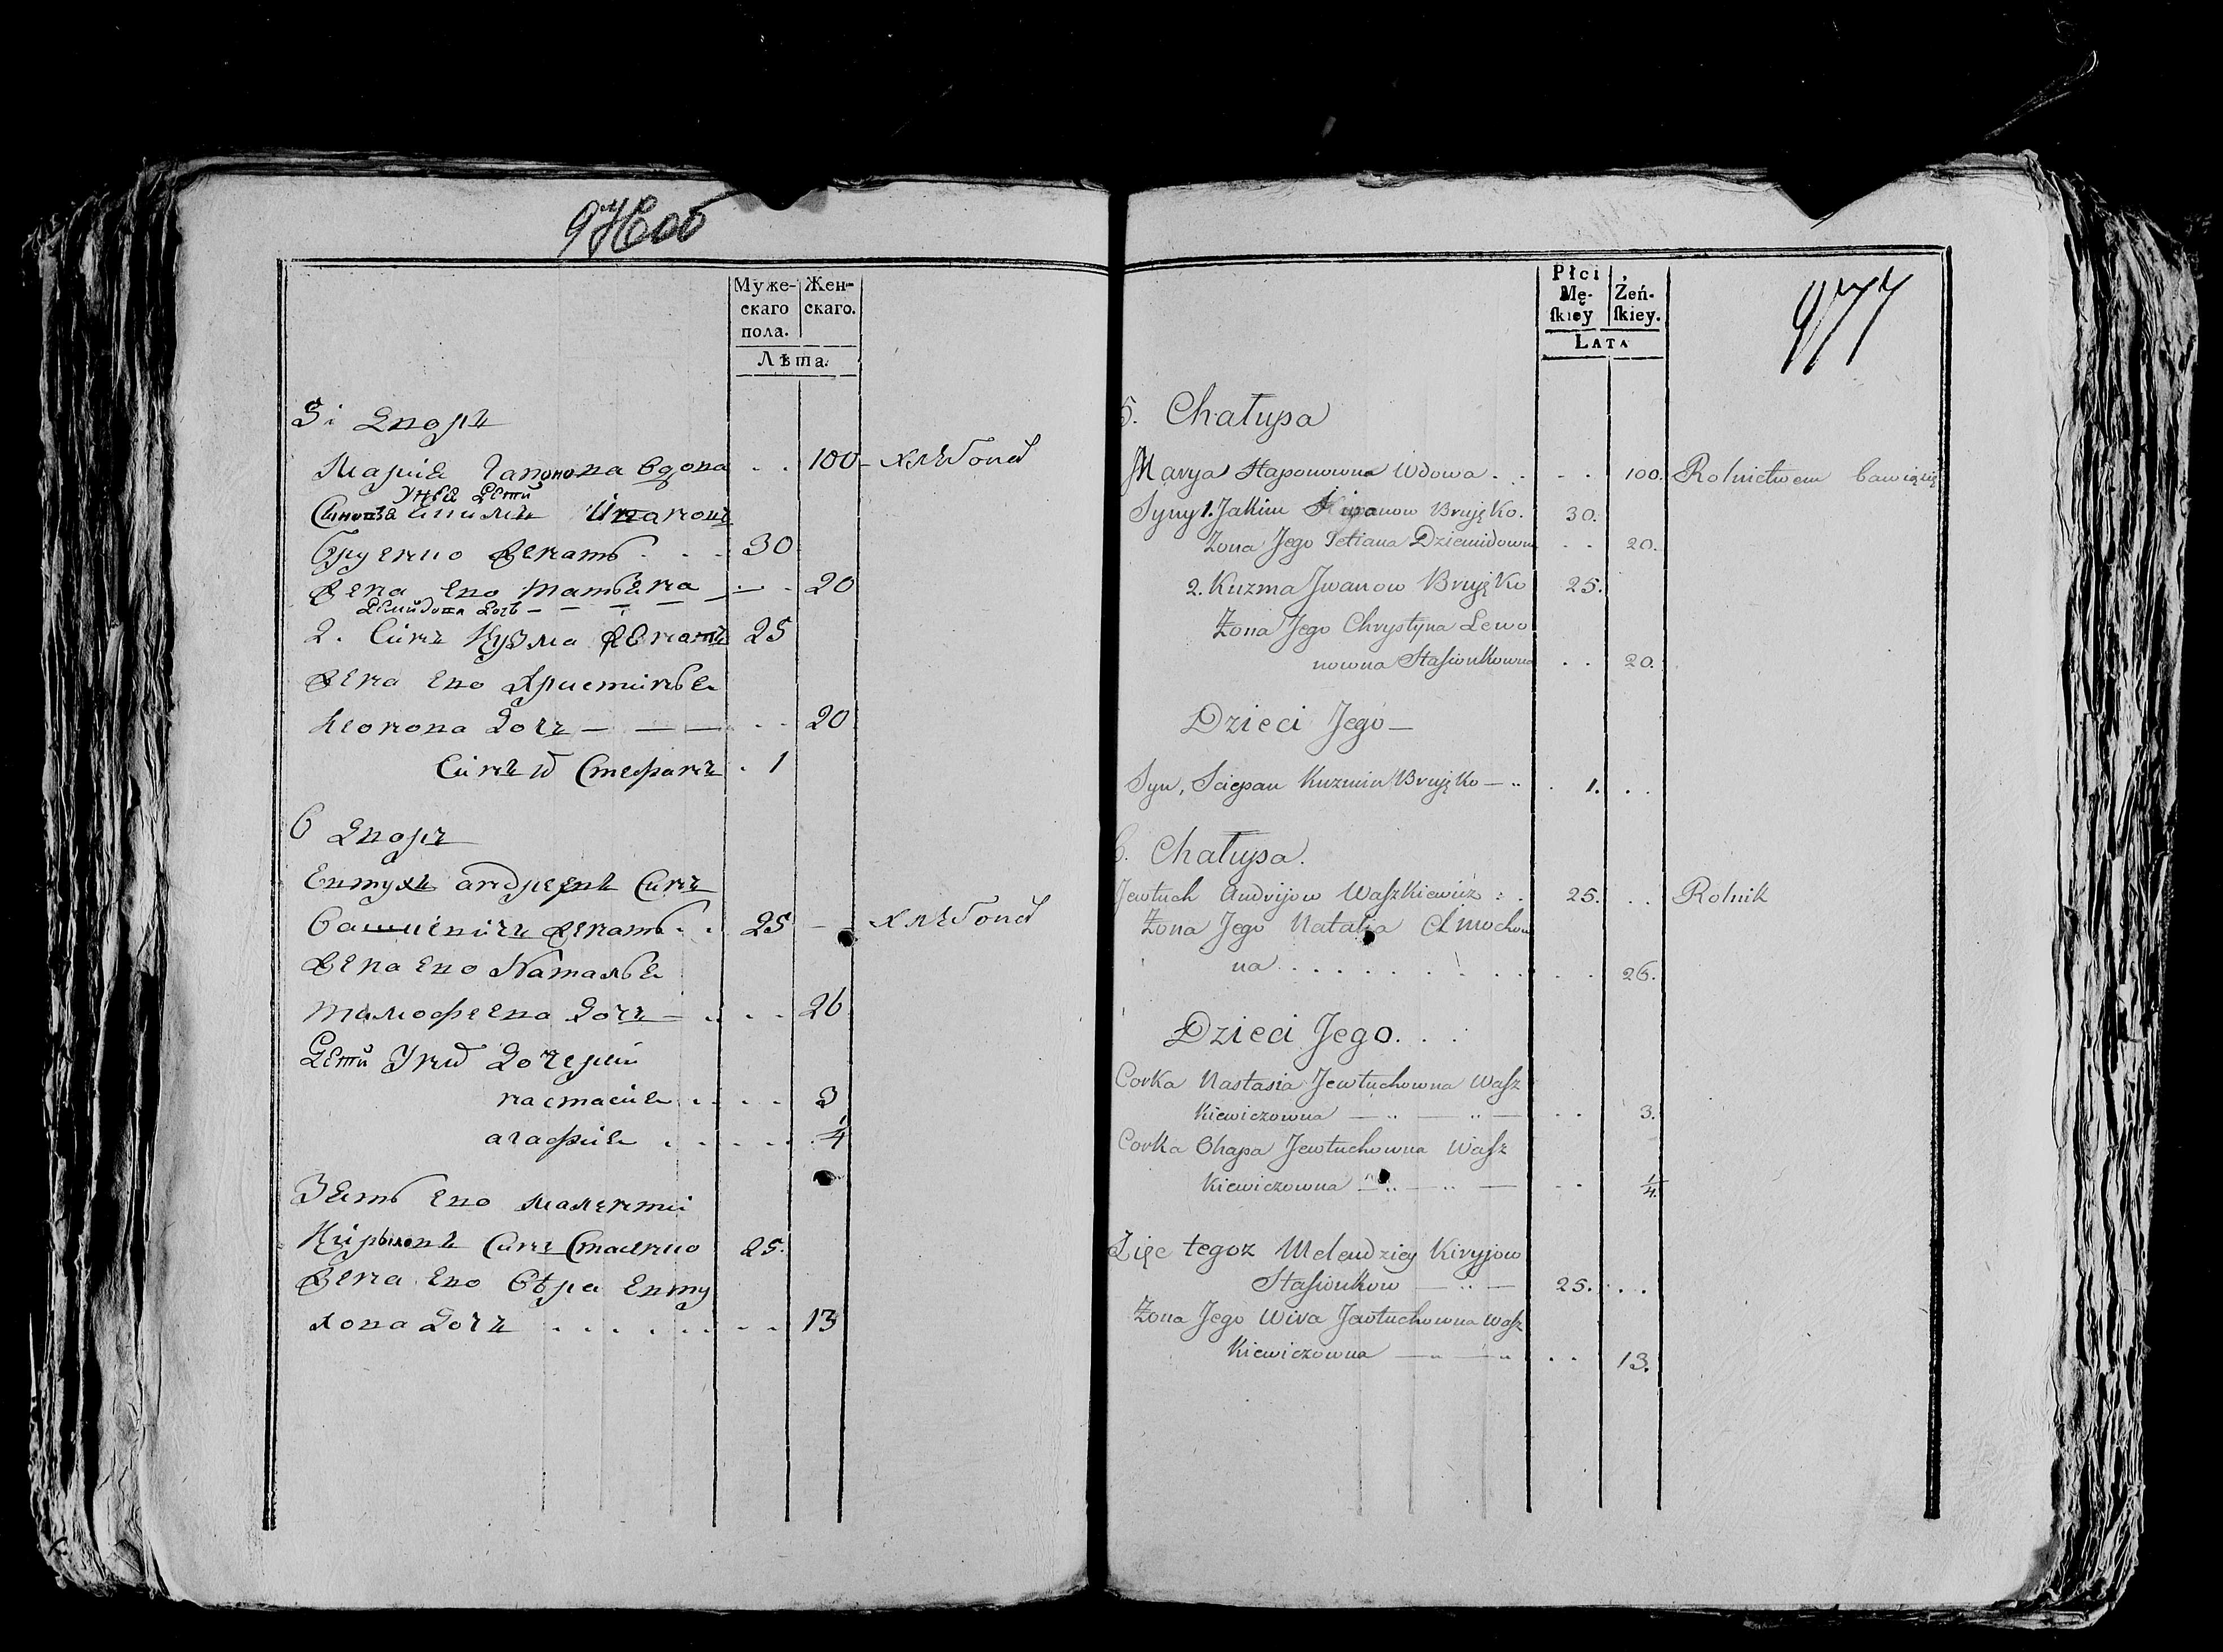 Муже-
скаго
пола.
Жен-
скаго.
Лѣта.
5 Дворъ
Марія Гапонова вдова . . 100 - хлѣбопа
У нея дети
Иванов
женатъ . . - 30
Жена его Татьяна — . 20
Демидова дочь
2. Синъ Кузма женатъ 25
Жена его Христинья
Леонова дочъ — — — . . 20
Синъ Стефанъ . 1
6 Дворъ
Евтухъ андреевъ синъ
Вашкевичъ женатъ . . 25 — хлѣбопа
Жена его Наталья
Тимофеева дочъ — . . . 26
Дети у них дочери
настасия . . . . 3
агафия . . . . . 1/4
Зять его
синъ Стасенко 25.
Жена его Вѣра Евту
хова дочъ . . . . . . . . 13
977
Płci
Mę-
ſkiey
Żeń-
ſkiey.
LATA
5. Chałupa
Marya Haponowna Wdowa . . . . 100. Rolnictwem bawiąsię
Syny 1. Jakim Iwanow 30.
Żona Jego Tetiana Dziemidowna . . 20.
2. Kuzma Jwanow 25.
Żona Jego Chrystyna Lewo
nowna Staſionkowna . . 20.
Dzieci Jego —
Syn, Sciepan Kuzmin — .. . 1. . .
6. Chałupa.
Jewtuch Andrijow Waſzkiewicz : . 25. . . Rolnik
Żona Jego Natalia
na . . . . . . . . . . . 26.
Dzieci Jego. . .
Corka Nastasia Jewtuchowna Waſz
kiewiczowna — .. — .. — . . 3.
Corka Ohapa Jewtuchowna Waſz
kiewiczowna — .. — .. — - - 1/4.
Zięc tegoz Kiryjow
Staſionkow — .. — 25. . .
Żona Jego Wira Jewtuchowna Waſz
kiewiczowna — .. — .. . . 13.